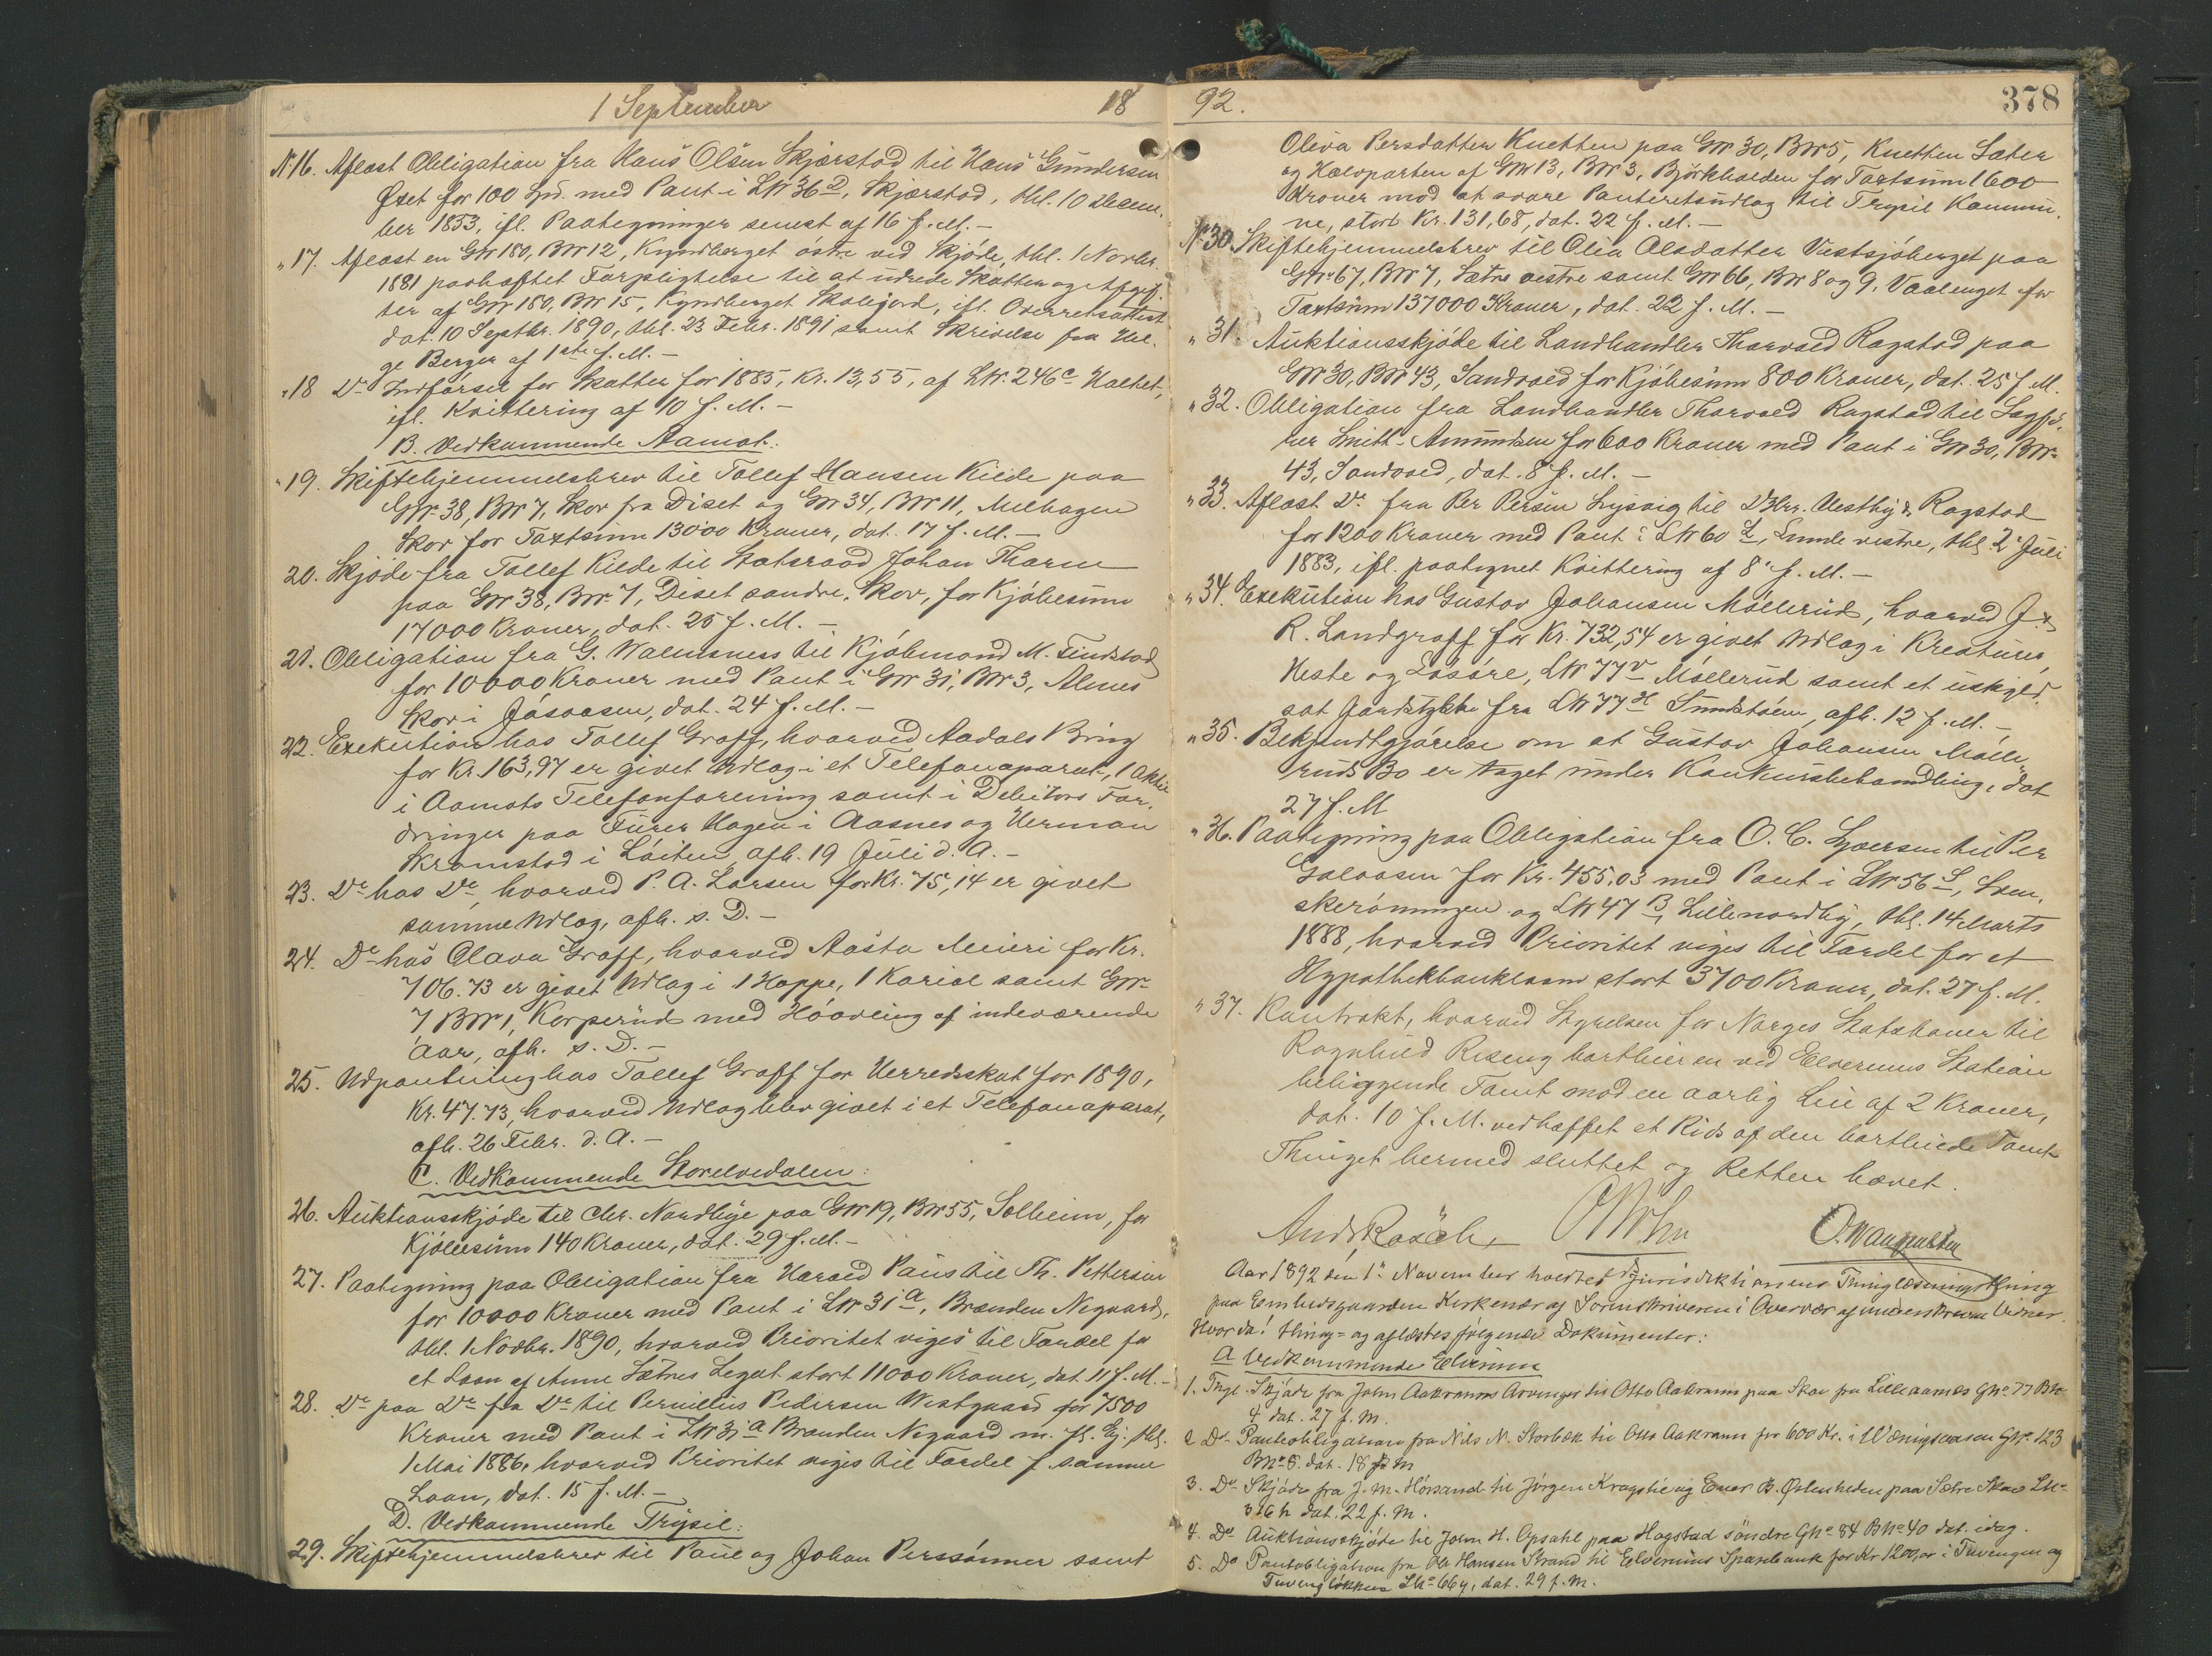 1 September 18
N. 16. Aflæst Obligation fra Hans Olsen Skjærstad til Hans Gundersen
Øxet for 100 Spd. med Pant i LN 36 D, Skjærstad, thl. 10 Decem-
ber 1853, ifl. Paategninger senest af 16 f. M. –
" 17. Aflæst en GN 180, BN 12, Kyndberget østre ved Skjøde, thl. 1 Novbr.
1881 paaheftet Forpligtelse til at udrede Skatter og Afgif-
ter af GN 180, BN 15, Kyndberget Skolejord, ifl. Overretsattest
dat. 10 Septbr. 1890, thl. 23 Febr. 1891 samt Skrivelse fra Hel-
ge Berger af 1ste f. M. –
" 18 Do Indførsel for Skatter for 1885, Kr. 13,55, af LN. 246c Haslet,
ifl. Kvittering af 10 f. M. –
B. Vedkommende Aamot:
" 19. Skiftehjemmelsbrev til Tollef Hansen Kilde paa
GN. 38, BN 7, Skov fra Diset og GN 34, BN 11, Melhagen
Skov for Taxtsum 13000 Kroner, dat. 17 f. M. –
20. Skjøde fra Tollef Kilde til Statsraad Johan Thorne
paa GN 38, BN. 7, Diset søndre, Skov, for Kjøbesum
17000 Kroner, dat. 25 f. M. –
21. Obligation fra G. Walmsness til Kjøbmand M. Findstad
for 10000 Kroner med Pant i GN 31, BN 3, Alme
Skov i Jøsaasen, dat. 24 f. M. –
22. Exekution hos Tollef Graff, hvorved Aadals Brug
for Kr. 163,97 er givet Udlæg i et Telefonaparat, 1 Aktie
i Aamots Telefonforening samt i Debitors For-
dringer paa Furer Hagen i Aasnes og Herman
Skramstad i Løiten, afh. 19 Juli d. A. –
23. Do hos Do, hvorved P. A. Larsen for Kr. 75,14 er givet
samme Udlæg, afh. s. D. –
24. Do hos Olava Graff, hvorved Aasta Meieri for Kr.
706.73 er givet Udlæg i 1 Hoppe, 1 Kariol samt GN
7 BN 1, Korperud med Høavling af indeværende
Aar, afh. s. D. –
25. Udpantning hos Tollef Graff for Herredsskat for 1890,
Kr. 47.73, hvorved Udlæg blev givet i et Telefonaparat,
afh. 26 Febr. d. A. –
C. Vedkommende Storelvedalen:
26. Auktionsskjøde til Chr. Nordbye paa GN 19, BN 55, Solheim, for
Kjøbesum 140 Kroner, dat. 29 f. M. –
27. Paategning paa Obligation fra Harald Paus til Th. Pettersen
for 10000 Kroner med Pant i LN 31 a, Brænden Nygaard,
thl. 1 Novbr. 1890, hvorved Prioritet viges til Fordel for
et Laan af Anne Sætres Legat stort 11000 Kroner, dat. 11 f. M. –
28. Do paa Do fra Do til Pernillius Pedersen Westgaard for 7500
Kroner med Pant i LN 31 a Brænden Nygaard m. fl. Ej., thl.
1 Mai 1886, hvorved Prioritet viges til Fordel f. samme
Laan, dat. 15 f. M. –
D. Vedkommende Trysil:
29. Skiftehjemmelsbrev til Paul og Johan Perssønner samt
92. 378
Oliva Persdatter Knetten paa GN 30, BN 5, Knetten Sæter
og Halvparten af GN 13, BN 3, Björkholden for Taxtsum 1600
Kroner mod at svare Panteretsudlæg til Trysil Kommu-
ne, stort Kr. 131,68, dat. 22 f. M. –
No 30. Skiftehjemmelsbrev til Olia Olsdatter Vestsjøberget paa
GN. 67, BN 7, Sætre vestre samt GN 66, BN 8 og 9, Vaalenget for
Taxtsum 137000 Kroner, dat. 22 f. M. –
" 31. Auktionsskjøde til Landhandler Thorvald Rogstad paa
GN 30, BN 43, Sandvold for Kjøbesum 800 Kroner, dat. 25 f. M.
" 32. Obligation fra Landhandler Thorvald Rogstad til Sagfø-
rer Smith-Amundsen for 600 Kroner med Pant i GN 30, BN
43, Sandvold, dat. 8 f. M. –
" 33. Aflæst Do fra Per Persen Lysvig til DHrr. Vestby & Rogstad
for 1200 Kroner med Pant i LN 60 , Lunde vestre, thl. 2 Juli
1883, ifl. paategnet Kvittering af 8 f. M. –
" 34. Exekution hos Gustav Johansen Møllerud, hvorved J.
R. Landgraff for Kr. 732,54 er givet Udlæg i Kreaturer,
Heste og Løsøre, LN 77 v Møllerud samt et uskyld-
sat Jordstykke fra LN 77 Sundstøen, afh. 12 f. M. –
" 35. Bekjendtgjørelse om at Gustav Johansen Mølle-
ruds Bo er taget under Konkursbehandling, dat
27 f. M
" 36. Paategning paa Obligation fra O. C. Sjøersen til Per
Galaasen for Kr. 455.03 med Pant i LN 56 S, Sven-
skerønningen og LN 47 B, Lillenordby, thl. 14 Marts
1888, hvorved Prioritet viges til Fordel for et
Hypothekbanklaan stort 3700 Kroner, dat. 27 f. M.
" 37. Kontrakt, hvorved Styrelsen for Norges Statsbaner til
Ragnhild Reseng bortleier en ved Elverums Station
beliggende Tomt mod en aarlig Leie af 2 Kroner,
dat. 10 f. M. vedhæftet et Rids af den bortleiede Tomt
Thinget hermed sluttet og Retten hævet.
Ands Rosöch O. Wangensten
Aar 1892 den 1ste November holdtes Jurisdiktionens Thinglæsningsthing
paa Embedsgaarden Kirkenær af Sorenskriveren i Overvær af underskrevne Vidner.
Hvorda! thing- og aflæstes følgende Dokumenter:
A Vedkommende Elverum
1. Tngl. Skjøde fra John Aakranns Arvinger til Otto Aakrann paa Skov fra Lilleaamos GNo 77 BNo
4 dat. 27 f. M.
2 Do Pantobligation fra Nils N. Storbæk til Otto Aakrann for 600 Kr. i Wæringsaasen GNo 123
BNo 8. dat. 18 f M
3. Do Skjøde fra J. M. Hörsand til Jörgen Kragstie og Ener B. Östenheden paa Sætre Skov LNo
316 h dat. 22 f. M.
4. Do Auktionsskjøde til John H. Opsahl paa Hagstad söndre GNo 84 BNo 40 dat. idag.
5. Do Pantobligation fra Ole Hansen Strand til Elverums Sparebank for Kr 1200,00 i Tuvengen og
Tuvengløkken LNo 66y, dat. 29 f. M.